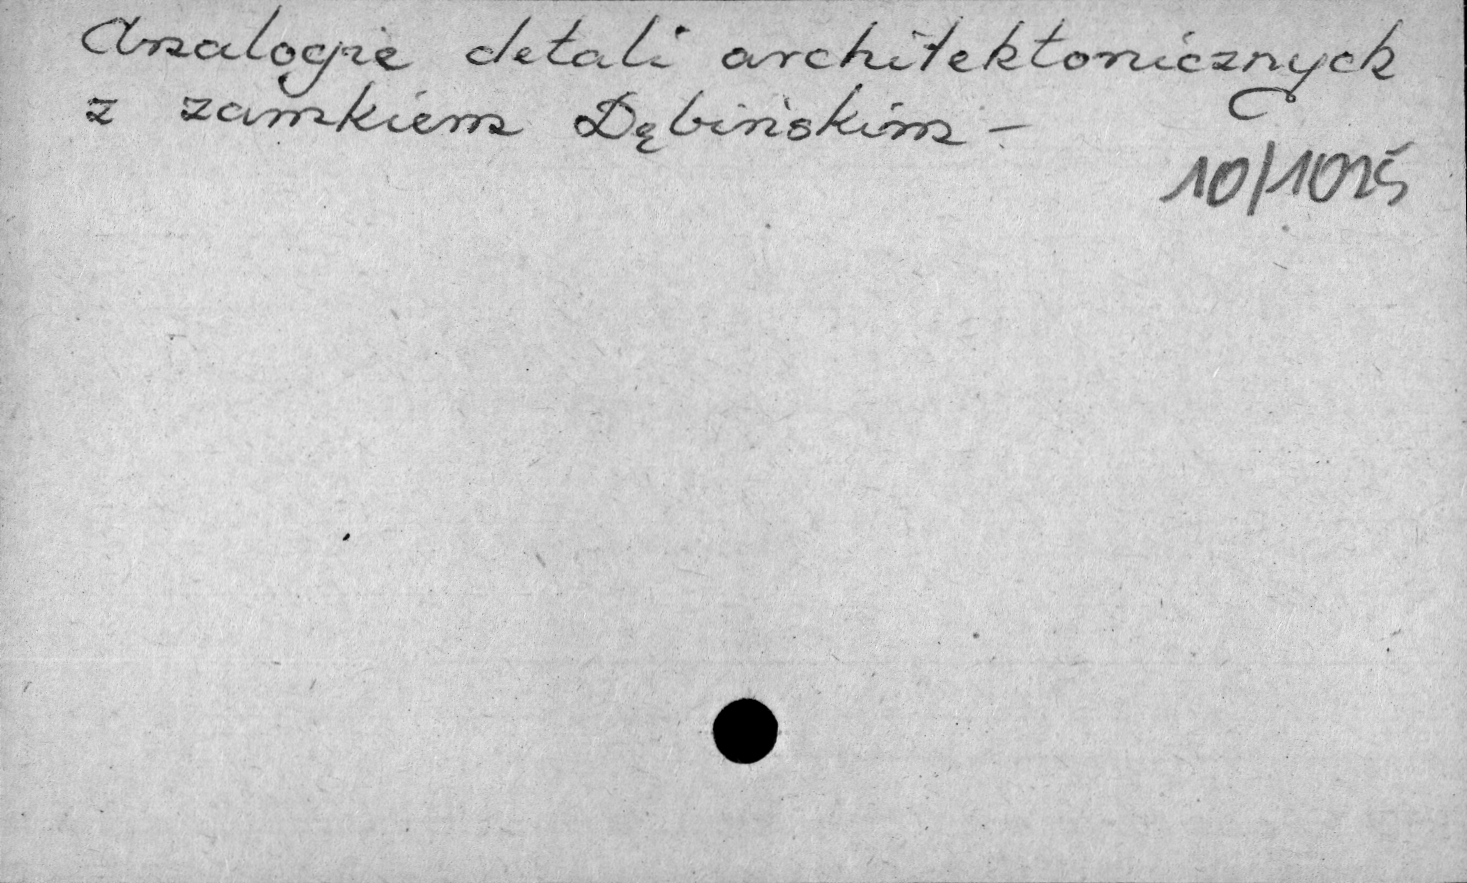 Analogie detali architektonicznych
z zamkiem Dębińskim -
10/1025